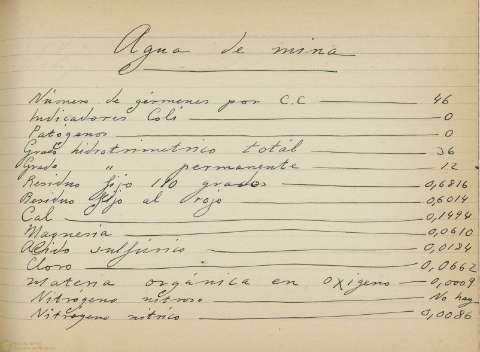 Agua de mina
Número de gérmenes por C.C — 46
Indicadores Coli — 0
Patógenos — 0
Grado hidrotrimetrico total — 36
Grado " permanente — 12
Residuo fijo 110 grados — 0,6816
Residuo fijo al rojo — 0,6014
Cal — 0,1494
Magnesia — 0,0610
Acido sulfúrico — 0,0184
Cloro — 0,0662
Materia orgánica en oxigeno — 0,0009
Nitrógeno nitroso — No hay
Nitrógeno nítrico — 0,0086